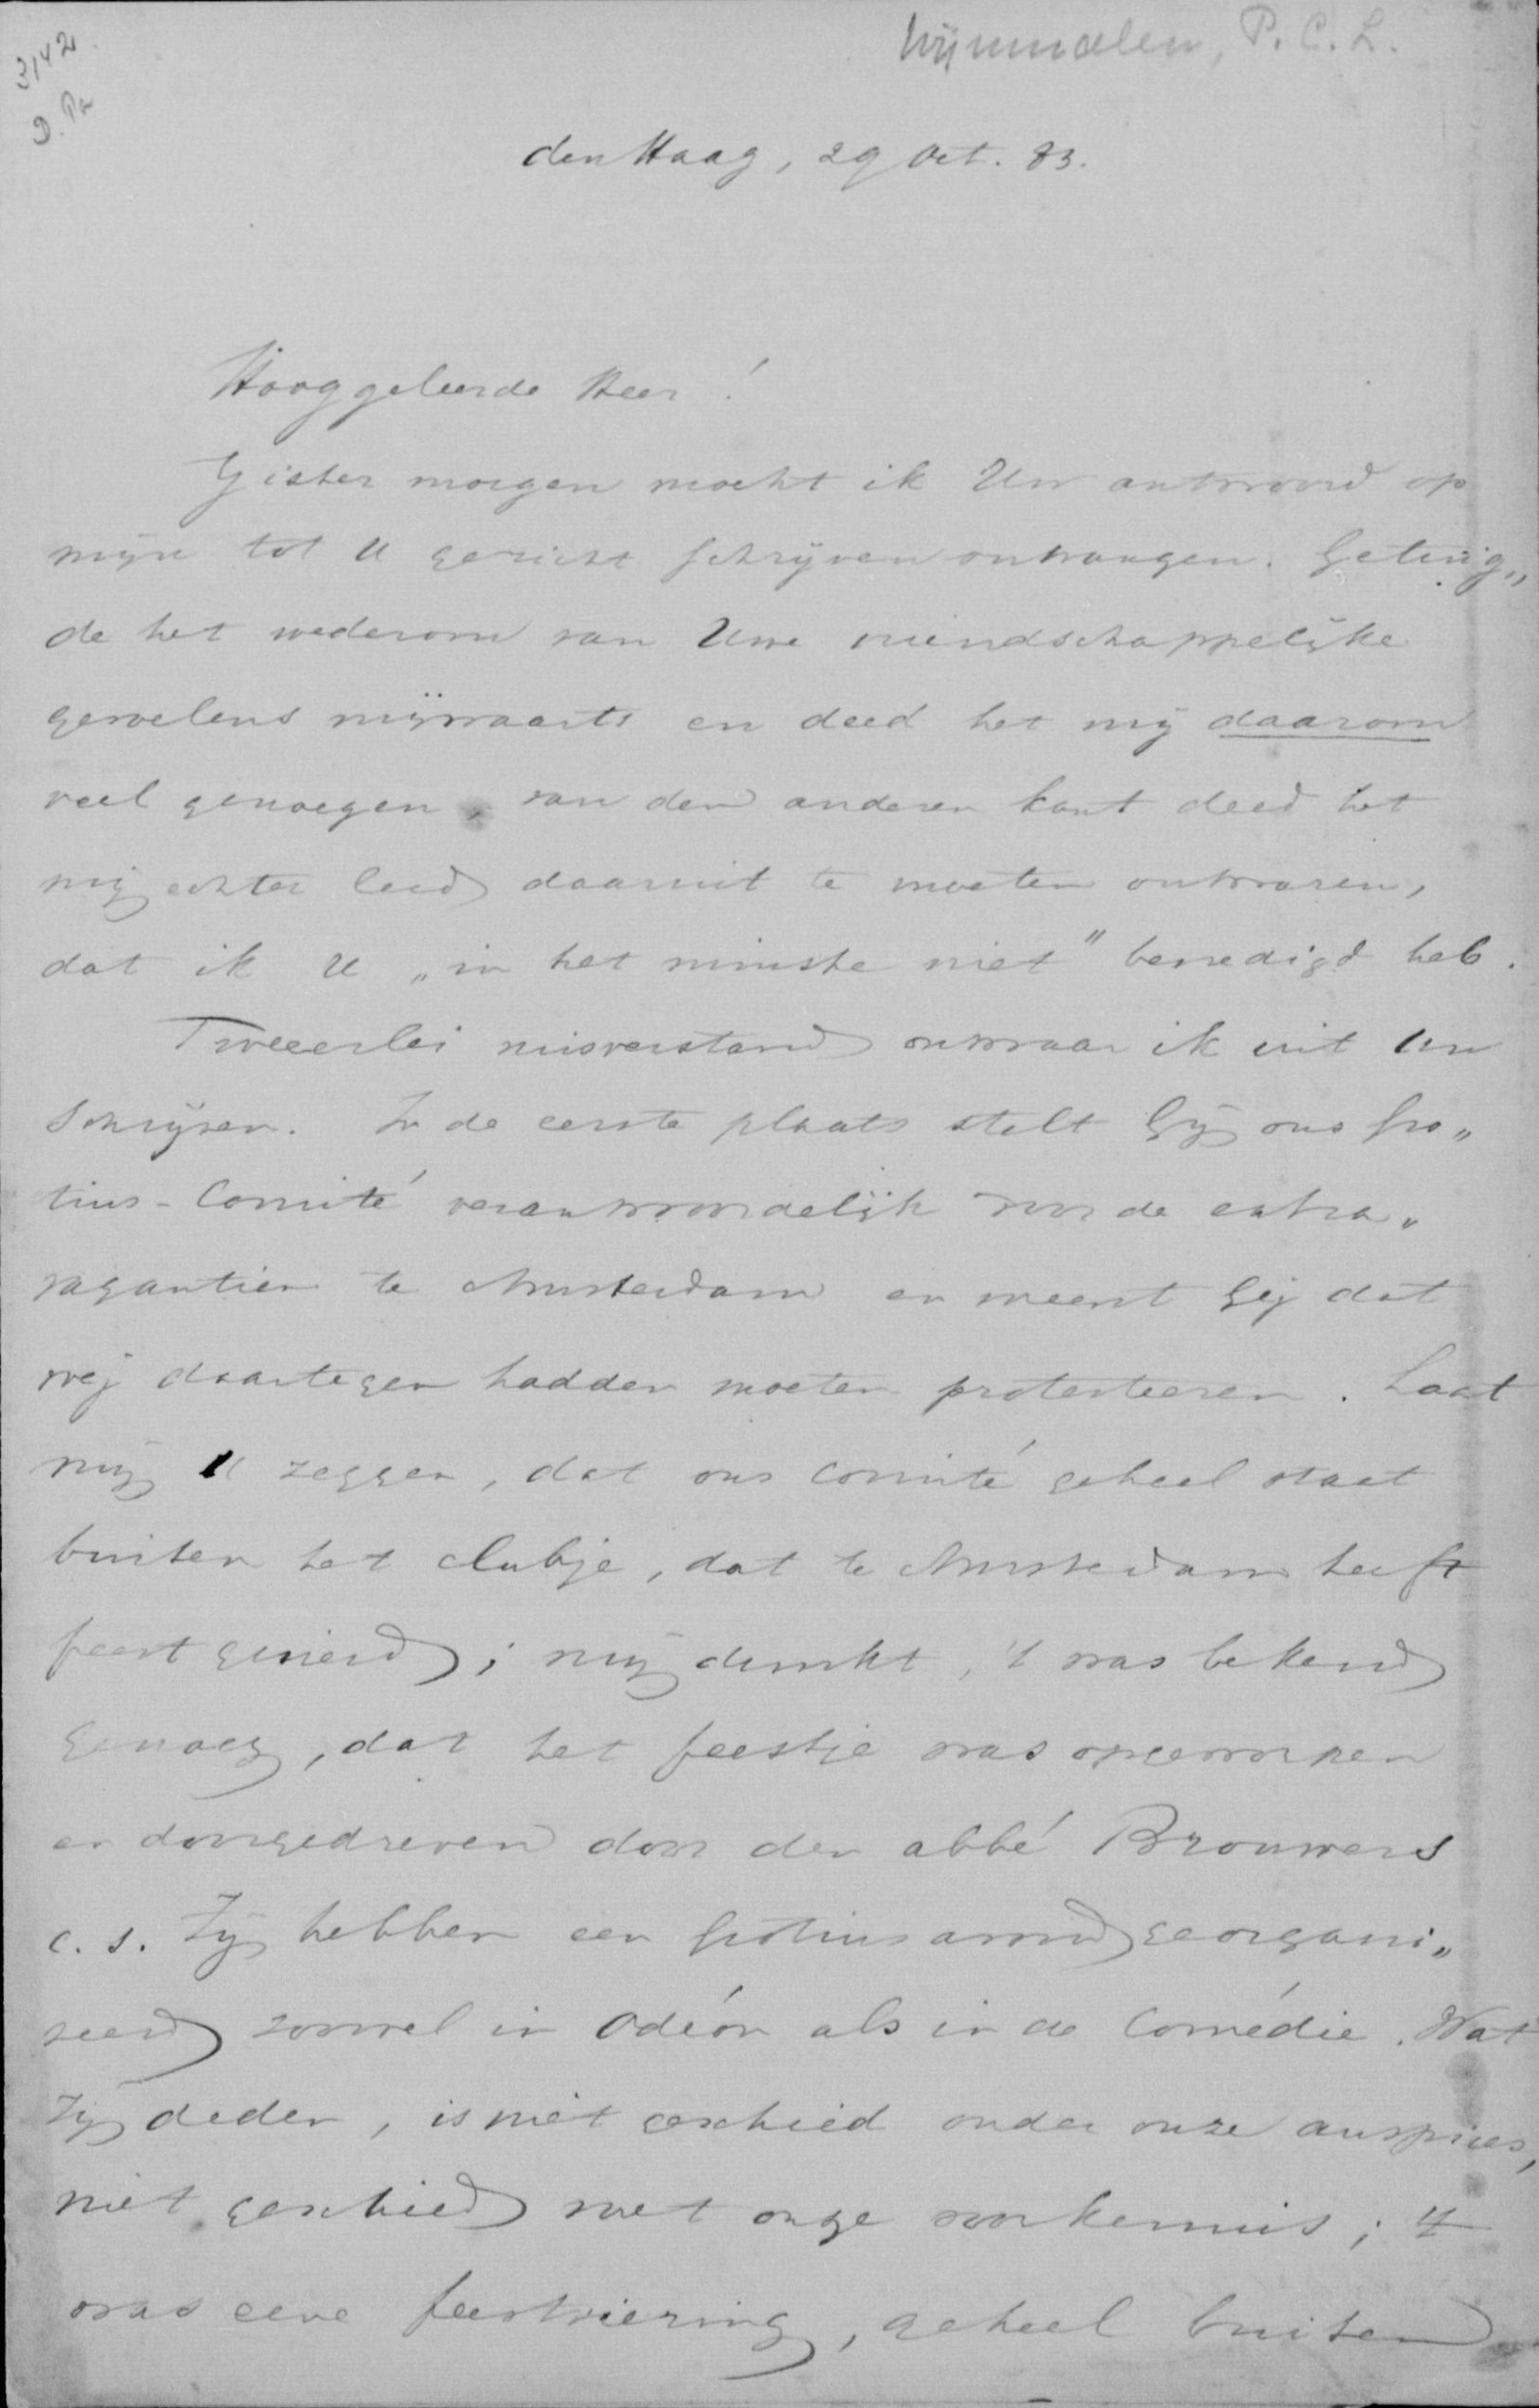 Wijnmalen, P. C. L.
3142
D. Pa
den Haag, 29 Oct. 83.
Hooggeleerde Heer!
Gister morgen mocht ik Uw antwoord op
mijn tot U gericht schrijven ontvangen. Getuig„
de het wederom van Uwe vriendschappelijke
gevoelens mijwaarts en deed het mij daarom
veel genoegen, van den anderen kant deed het
mij echter leed daaruit te moeten ontwaren,
dat ik U „in het minste niet" bevredigd heb.
Tweeerlei misverstand ontwaar ik uit Uw
schrijven. In de eerste plaats stelt Gij ons Gro„
tius-Comité verantwoordelijk voor de extra„
vagantien te Amsterdam en meent Gij dat
wij daartegen hadden moeten protesteeren. Laat
mij U zeggen, dat ons Comité geheel staat
buiten het clubje, dat te Amsterdam heeft
feest gevierd; mij dunkt, 't was bekend
genoeg, dat het feestje was opgeworpen
en doorgedreven door den abbé Brouwers
c. s. Zij hebben een Grotius avond georgani„
seerd zoowel in Odéon als in de Comédie. Wat
zij deden, is niet geschied onder onze auspices,
niet geschied met onze voorkennis; 't
was eene feestviering, geheel buiten